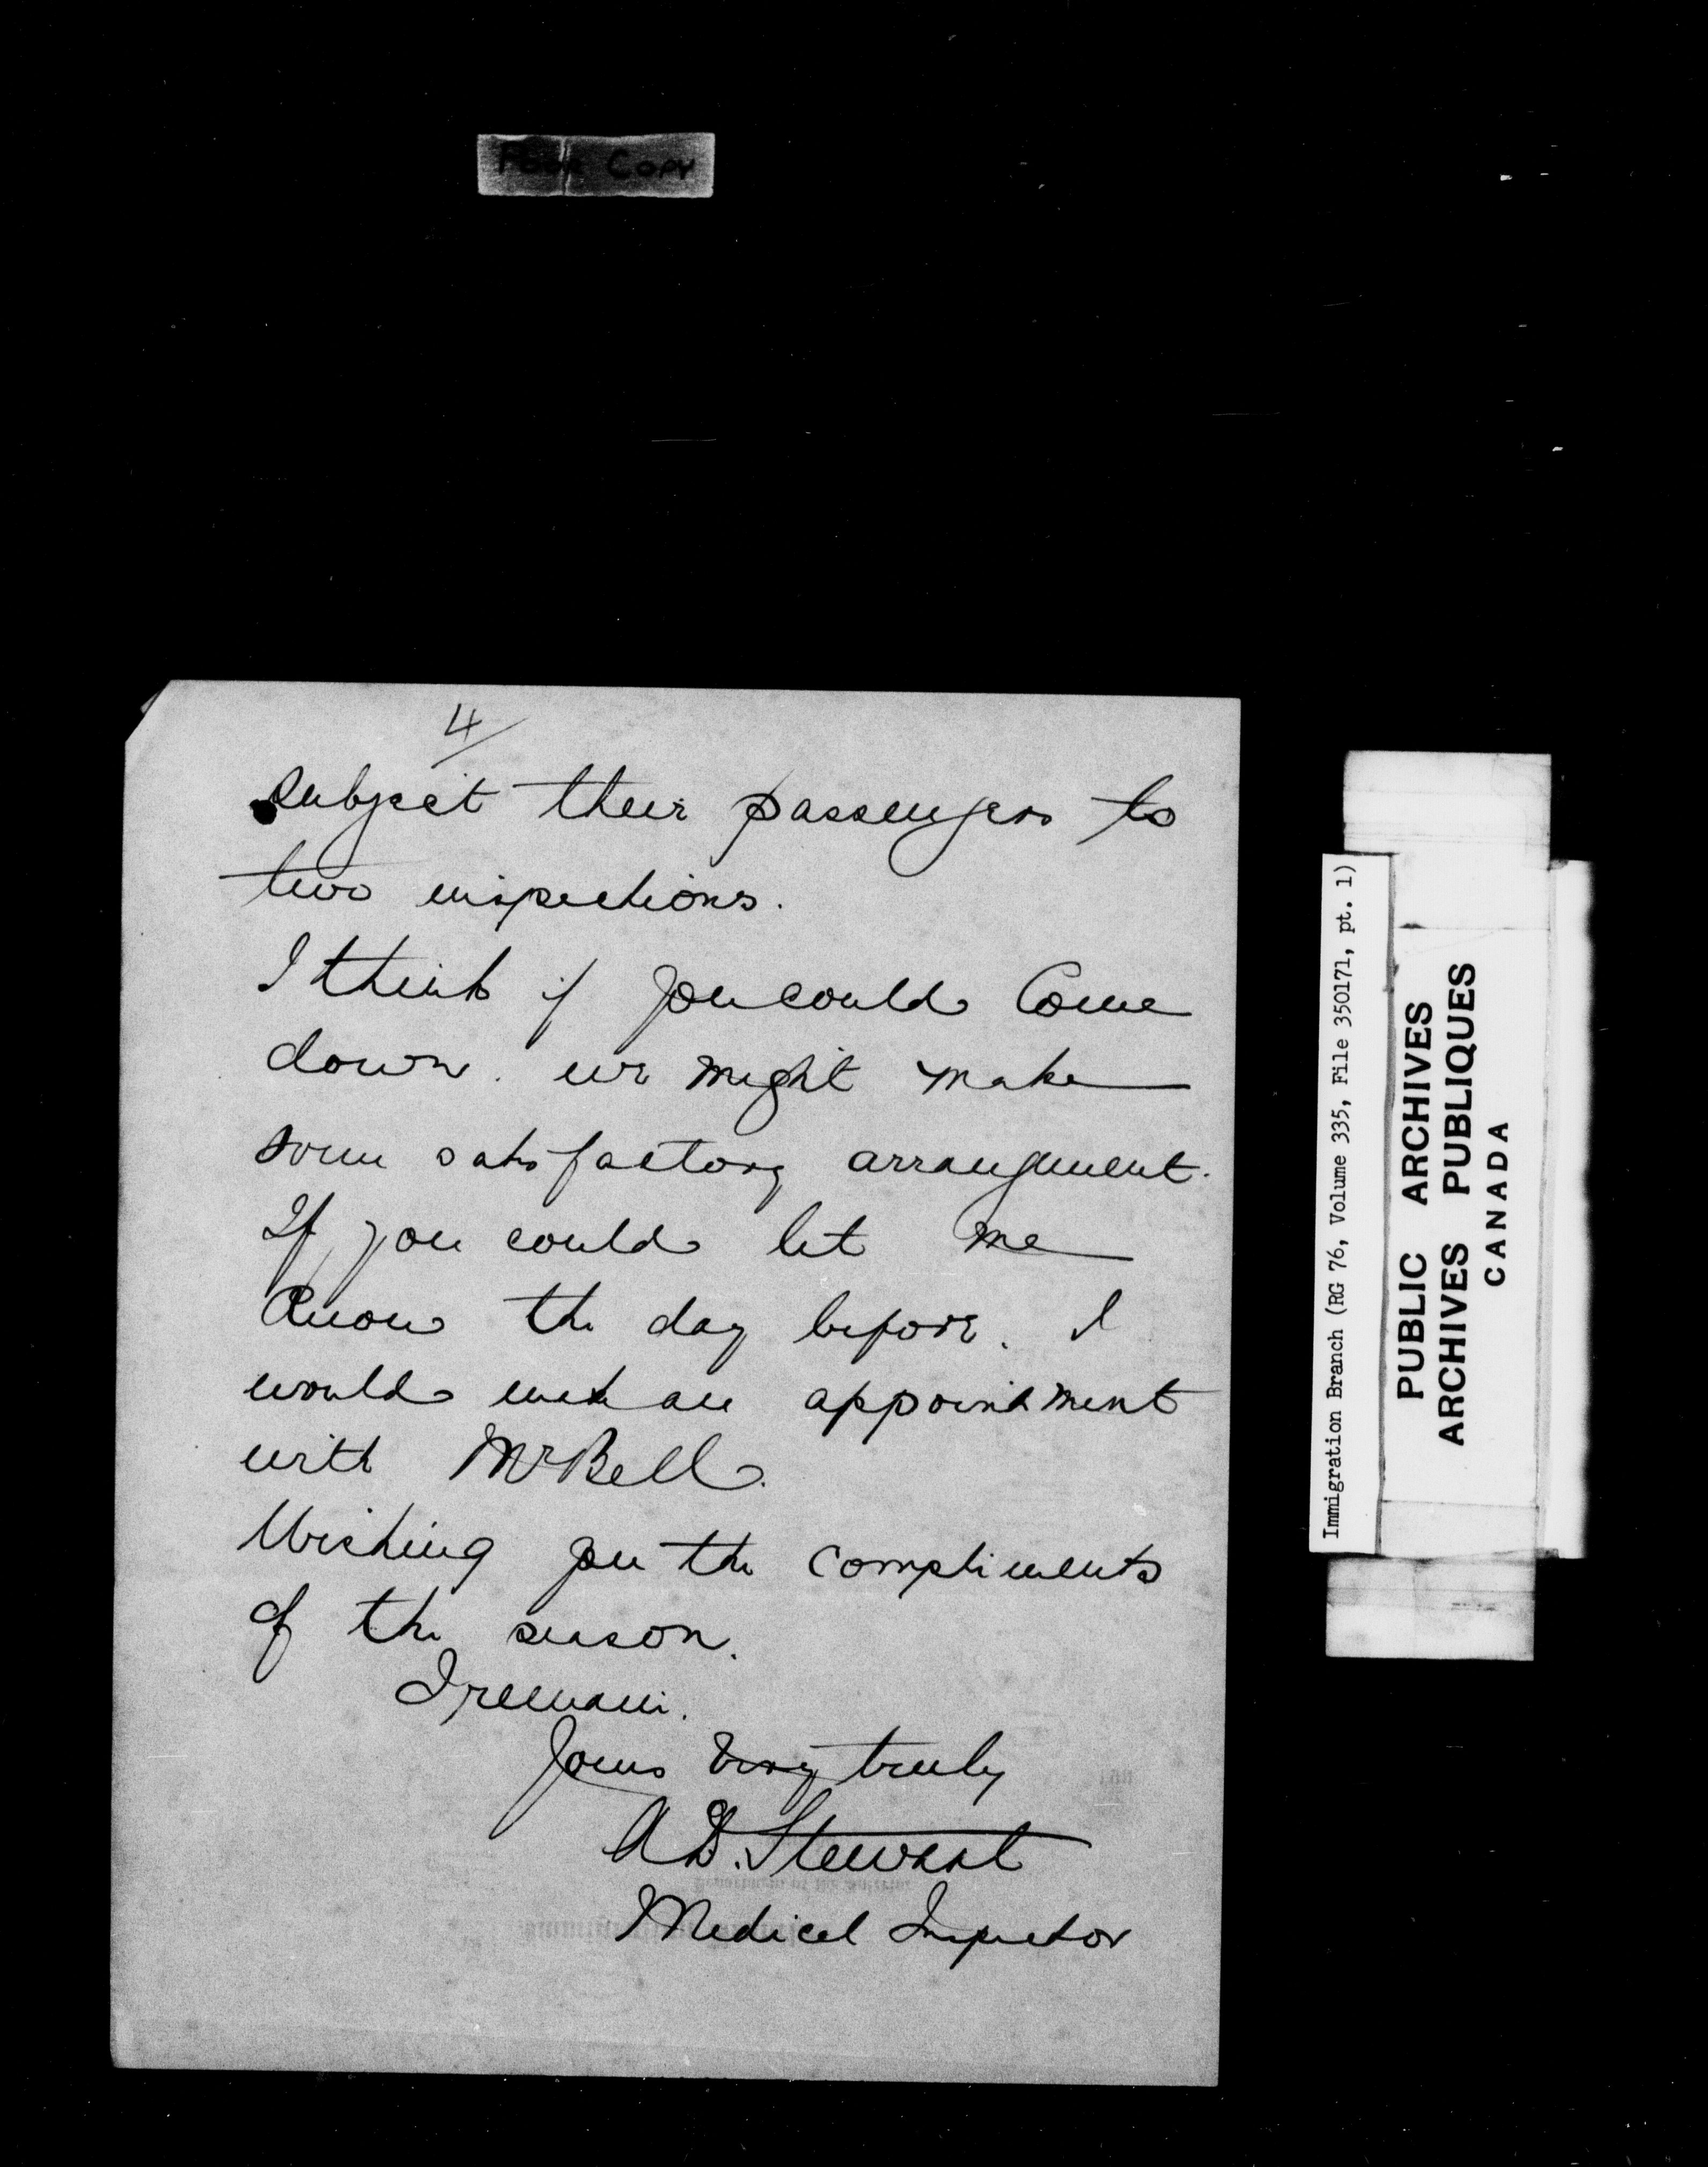 Poor Copy
4/
subject their passengers to
two inspections.
I think if you could Come
down. we might make
some satisfactory arrangement.
If you could let me
Know the day before. I
would make an appointment
with Mr Bell.
Wishing you the compliments
of the season.
I remain.
Yours Very truly
A D. Stewart
Medical Inspector
Immigration Branch (RG 76, Volume 335, File 350171, pt. 1)
PUBLIC ARCHIVES
ARCHIVES PUBLIQUES
CANADA